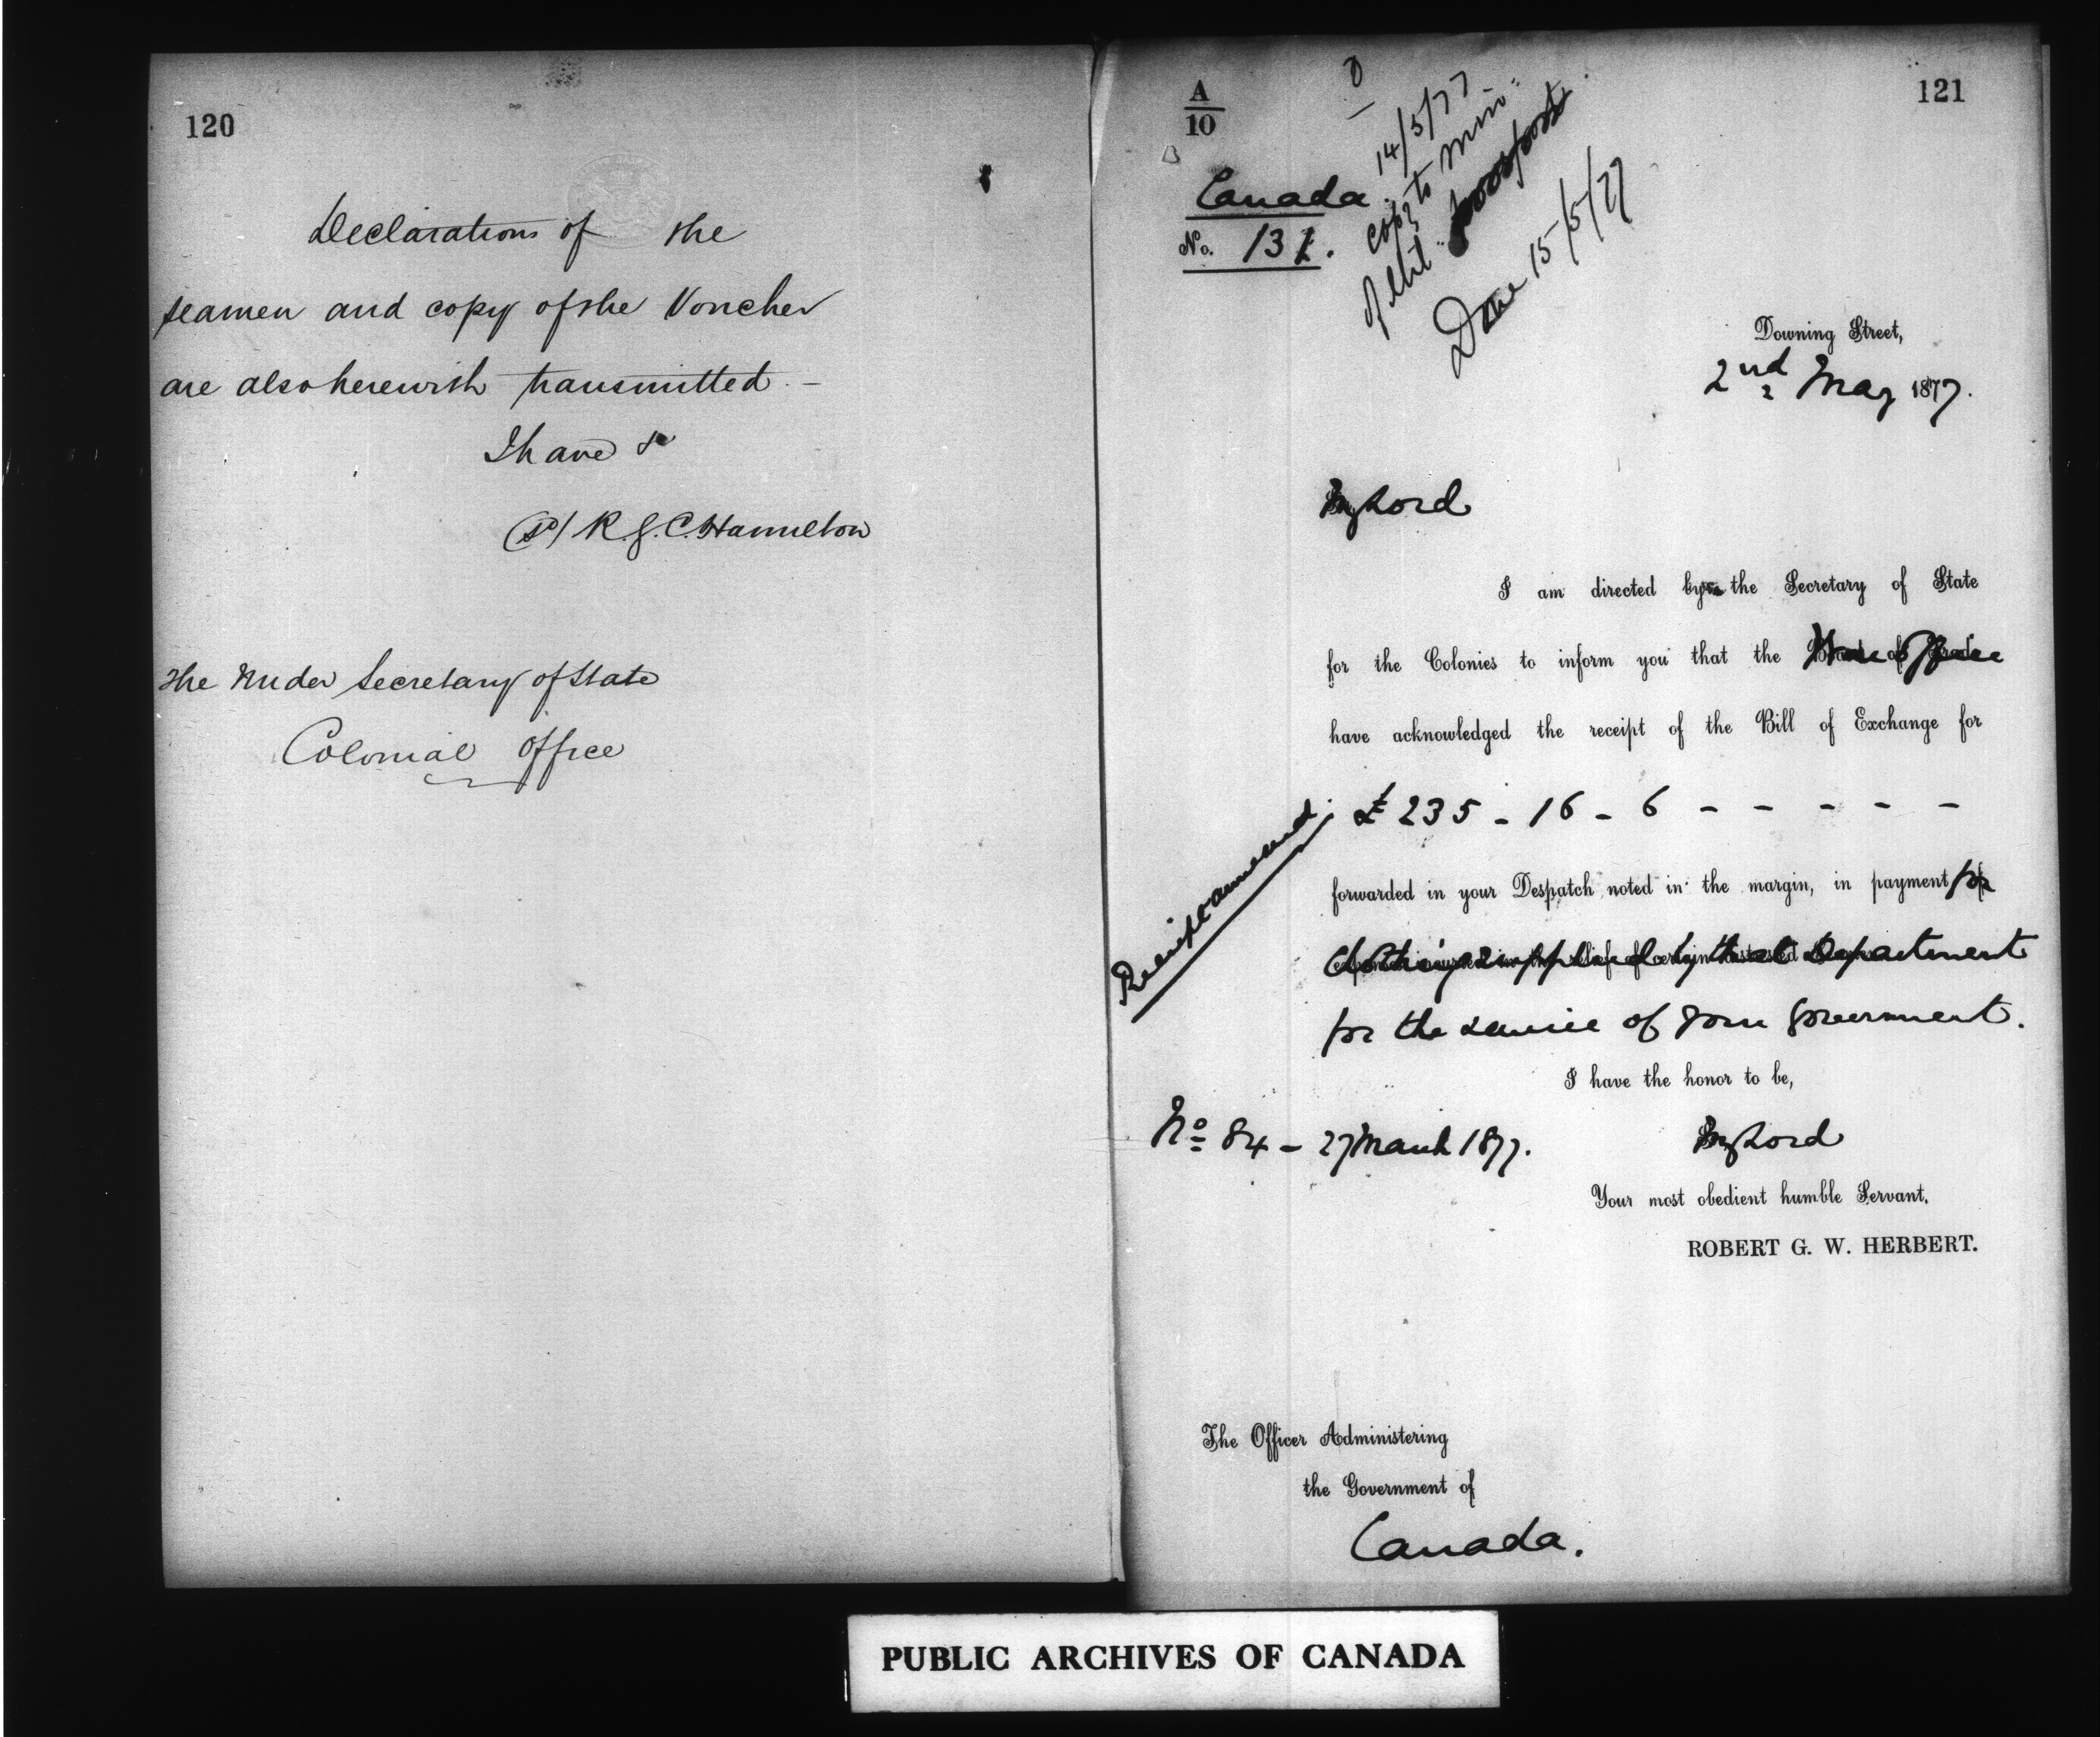 120
Declarations of the
seamen and copy of the Voucher
are also herewith transmitted. –
I have &
(sd) R. G. C. Hamilton
The Under Secretary of State
Colonial Office
A
10
121
14/5/77
Copy to Min:
of Mil:
Done 15/5/77
Canada.
No. 131.
Downing Street,
2nd May 1877.
My Lord
I am directed by the Secretary of State
for the Colonies to inform you that the War Office
have acknowledged the receipt of the Bill of Exchange for
£235 - 16 - 6 - - - - -
forwarded in your Despatch noted in the margin, in payment for
clothing supplied by that Department
for the service of your Government.
Receipt annexed.
I have the honor to be,
No 84 - 27 March 1877.
My Lord
Your most obedient humble Servant,
ROBERT G. W. HERBERT.
The Officer Administering
the Government of
Canada.
PUBLIC ARCHIVES OF CANADA